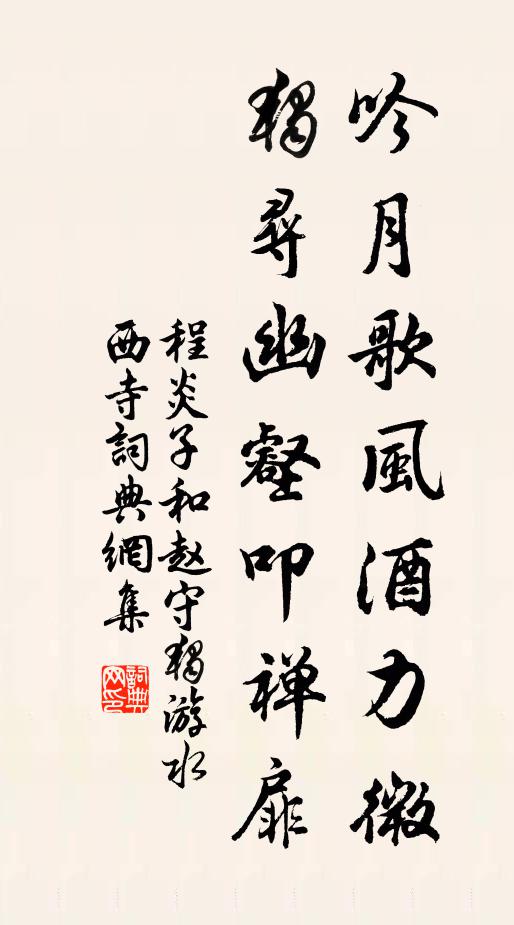 吟月歌風酒力微
獨尋幽壑叩禅扉
程炎子和赵守獨游水
西寺詞典網集
詞典
网印